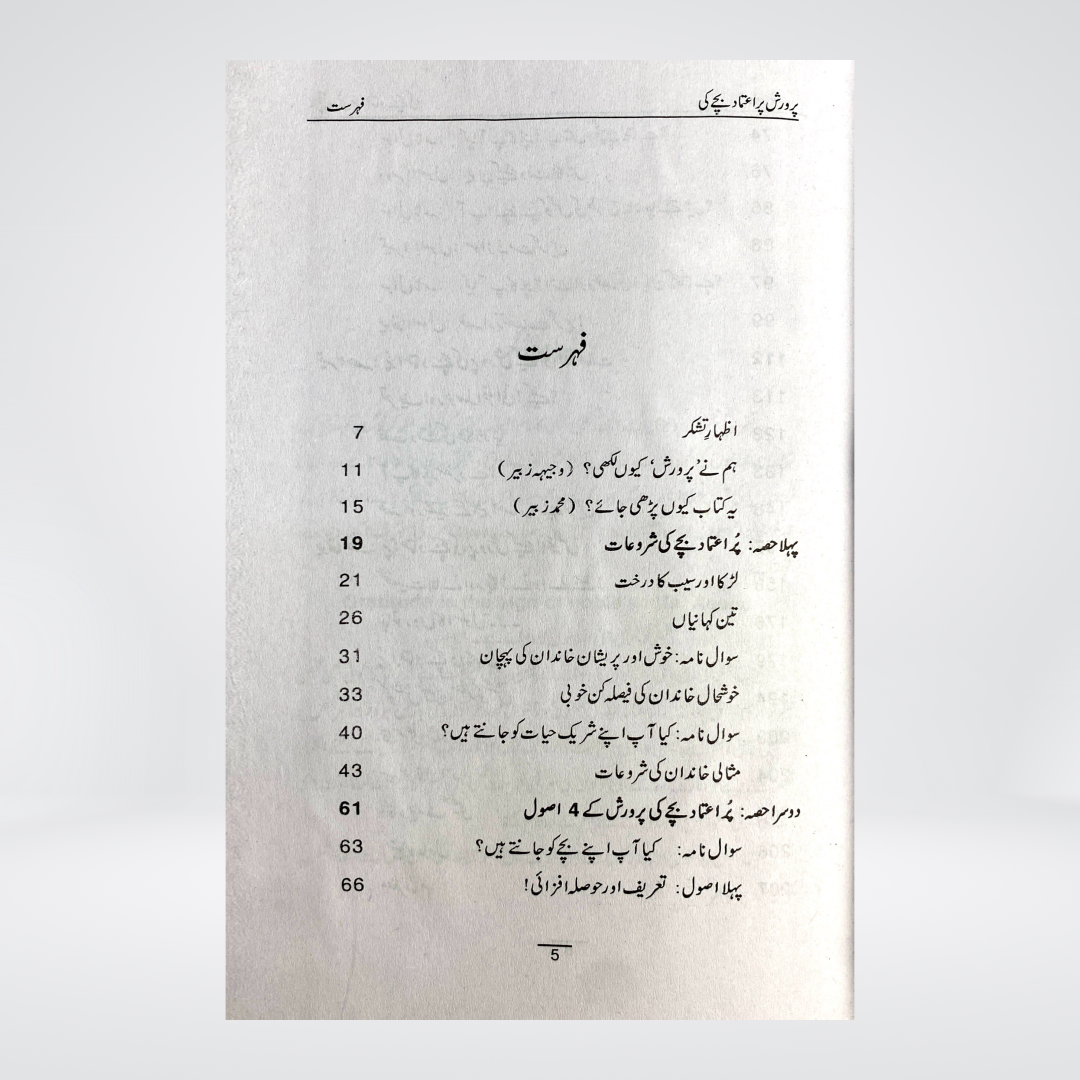 پرورش پر اعتماد بچے کی فہرست
فہرست
اظہارِ تشکر 7
ہم نے ’پرورش‘ کیوں لکھی؟ (وجیہہ زبیر) 11
یہ کتاب کیوں پڑھی جائے؟ (محمد زبیر) 15
پہلا حصہ: پُر اعتماد بچے کی شروعات 19
لڑکا اور سیب کا درخت 21
تین کہانیاں 26
سوال نامہ: خوش اور پریشان خاندان کی پہچان 31
خوشحال خاندان کی فیصلہ کن خوبی 33
سوال نامہ: کیا آپ اپنے شریک حیات کو جانتے ہیں؟ 40
مثالی خاندان کی شروعات 43
دوسرا حصہ: پُر اعتماد بچے کی پرورش کے 4 اصول 61
سوال نامہ: کیا آپ اپنے بچے کو جانتے ہیں؟ 63
پہلا اصول: تعریف اور حوصلہ افزائی! 66
5